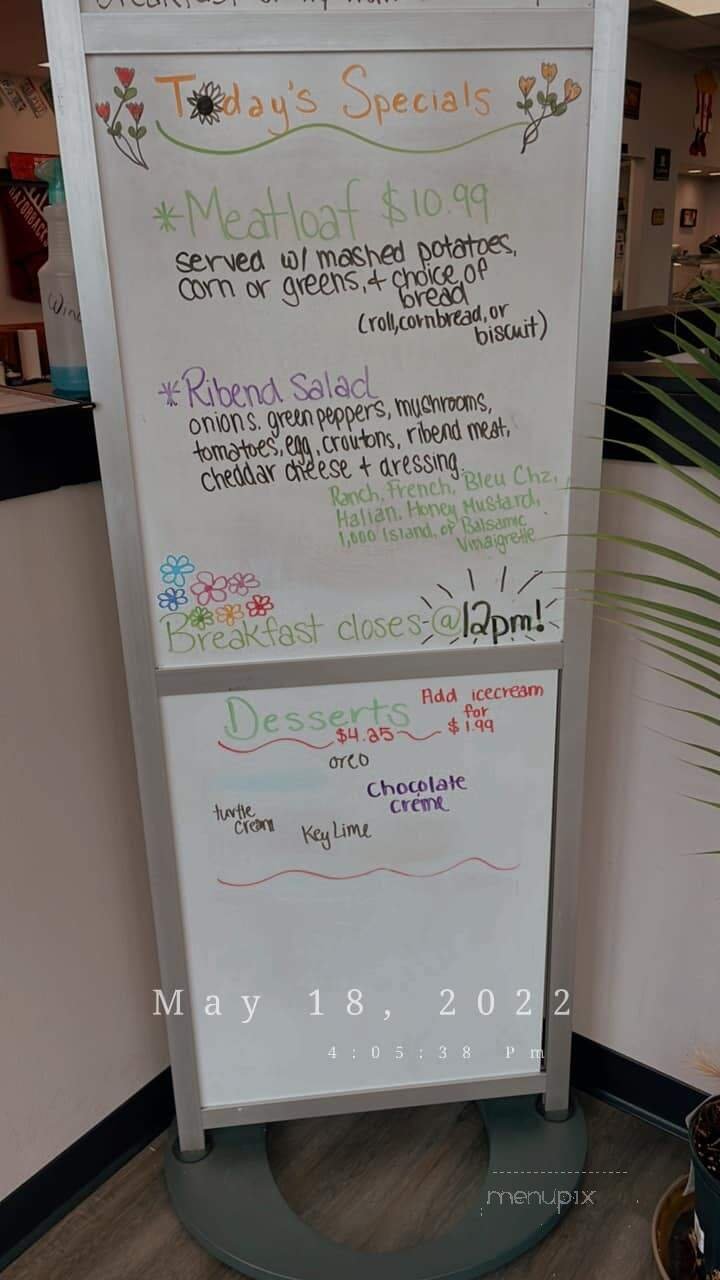 Today's Specials
*Meatloaf $10.99
served w/ mashed potatoes,
corn or greens, + choice of
bread
(roll, cornbread, or
biscuit)
*Ribend Salad
onions, green peppers, mushrooms,
tomatoes, egg, croutons, ribend meat,
cheddar cheese + dressing.
Ranch, French, Bleu Chz,
Italian, Honey Mustard,
1,000 Island, or Balsamic
Vinaigrette
Breakfast closes @ 12pm!
Desserts
Add icecream
for
$1.99
$4.25
oreo
Chocolate
créme
turtle
cream
Key Lime
May 18, 2022
4:05:38 Pm
menupix